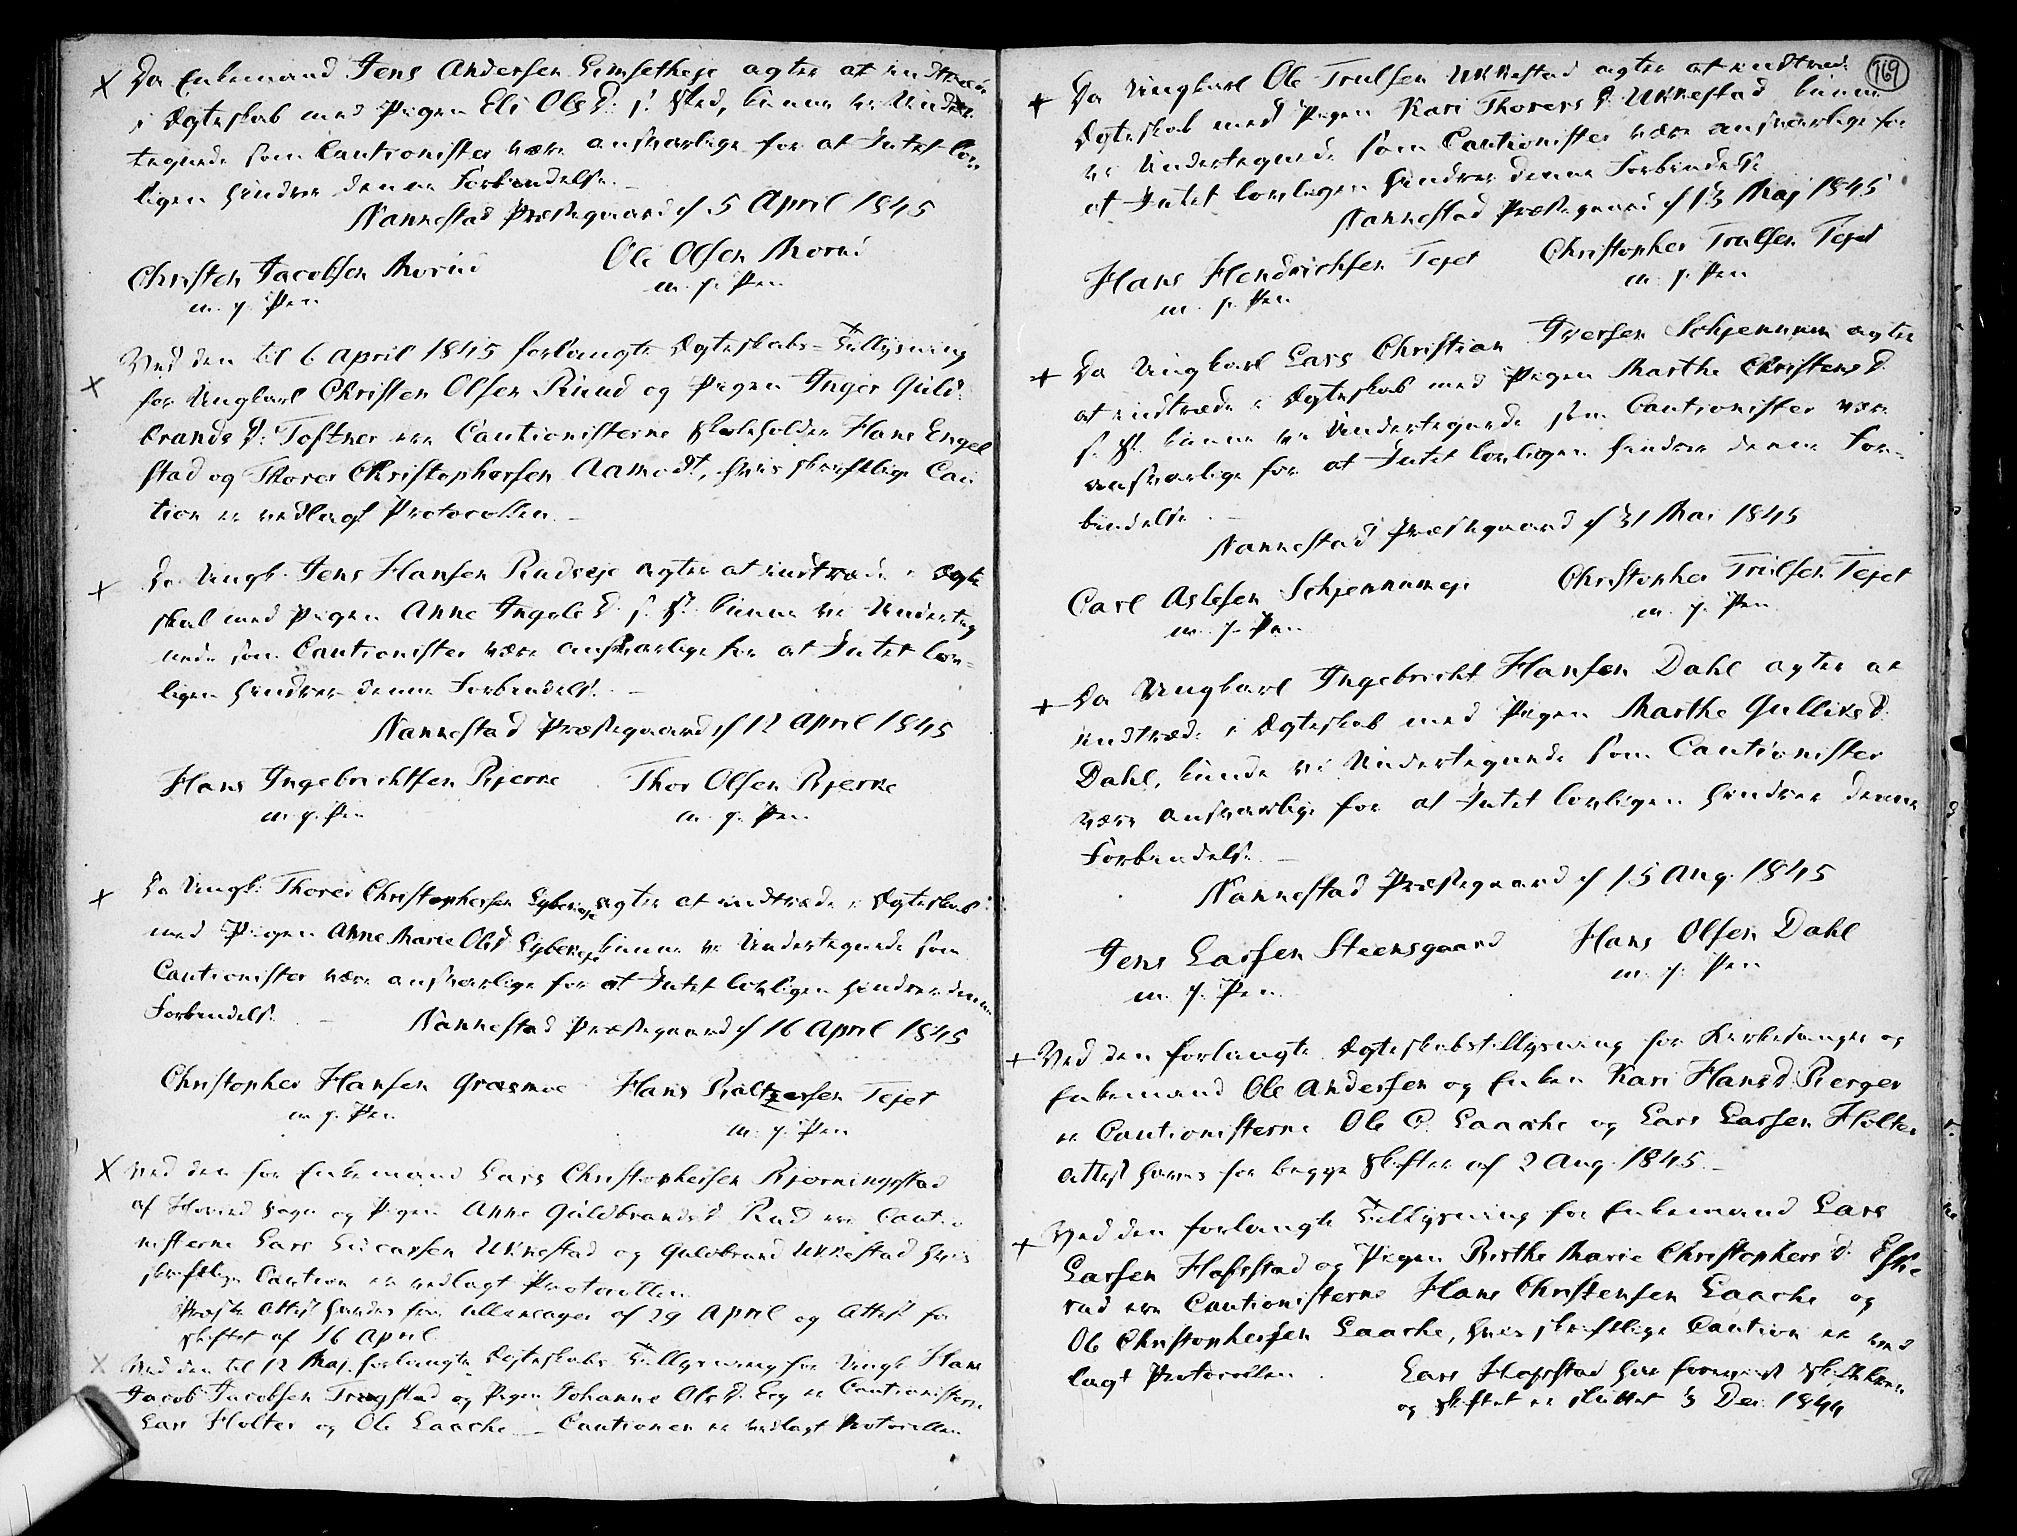 × Da Enkemand Jens Andersen Limseth agter at indtræde
i Ægteskab med Pigen Eli Ols D: s: Sted, kunne vi Under-
tegnede som Cautionister være ansvarlige for at Intet lov-
ligen hindrer denne Forbindelse. –
Nannestad Præstegaard d 5 April 1845
Christen Jacobsen Morud Ole Olsen Morud
m. p. Pen m. p. Pen
× Ved den til 6 April 1845 forlangte Ægteskabs-Tillysning
for Ungkarl Christen Olsen Ruud og Pigen Inger Guld-
brands D: Toftner ere Cautionisterne Skoleholder Hans Engel
stad og Thorer Christophersen Aamodt, hvis skriftlige Cau
tion er vedlagt Protocollen. –
+ Da Ungk. Jens Hansen Rudseje agter at indtræde i Ægte
skab med Pigen Anne Ingebs D: s. St. kunne vi Underteg
nede som Cautionister være ansvarlige for at Intet lov-
ligen hindrer denne Forbindelse. –
Nannestad Præstegaard d 12 April 1845
Hans Ingebrichtsen Bjerke Thor Olsen Bjerke
m. p. Pen m. p. Pen
+ Da Ungk: Thorer Christophersen agter at indtræde i Ægteskab
med Pigen Anne Marie Ols D kunne vi Undertegnede som
Cautionister være ansvarlige for at Intet lovligen hindrer denne
Forbindelse. – Nannestad Præstegaard d 16 April 1845
Christopher Hansen Græsmoe Hans Baltzersen Tejet
m. p. Pen m. p. Pen
× Ved den for Enkemand Lars Christophersen Bjørningstad
af Hovind Sogn og Pigen Anne Guldbrands D Rud ere Cautio
nisterne Lars Lucassen Ukkestad og Guldbrand Ukkestad hvis
skriftlige Caution er vedlagt Protocollen
Præste Attest havdes fra Ullensager af 29 April og Attest for
Skiftet af 16 April
× Ved den til 12 Maj forlangte Ægteskabs Tillysning for Ungk Hans
Jacob Jacobsen Trøgstad og Pigen Johanne Ols D. er Cautionisterne
Lars Holter og Ole Laache – Cautionen er vedlagt Protocollen
169
+ Da Ungkarl Ole Trulsen Ukkestad agter at indtræde
Ægteskab med Pigen Kari Thorers D. Ukkestad kunne
vi Undertegnede som Cautionister være ansvarlige for
at Intet lovligen hindrer denne Forbindelse
Nannestad Præstegaard d 13 Maj 1845
Hans Hendrichsen Tejet Christopher Trulsen Tejet
m. p. Pen m. p. Pen
+ Da Ungkarl Lars Christian Iversen Schjennum agter
at indtræde i Ægteskab med Pigen Marthe Christens D.
s. St. kunne vi Undertegnede som Cautionister være
ansvarlige for at Intet lovligen hindrer denne For-
bindelse. –
Nannestad Præstegaard d 31 Mai 1845
Carl Aslesen Schjennumeje Christopher Trulsen Tejet
m. p. Pen m. p. Pen
+ Da Ungkarl Ingebricht Hansen Dahl agter at
indtræde i Ægteskab med Pigen Marthe Gulliks D.
Dahl, kunde vi Undertegnede som Cautionister
være ansvarlige for at Intet lovligen hindrer denne
Forbindelse. –
Nannestad Præstegaard d 15 Aug. 1845
Jens Larsen Steensgaard Hans Olsen Dahl
m. p. Pen m. p. Pen
+ Ved den forlangte Ægteskabstillysning for Kirkesanger og
Enkemand Ole Andersen og Enken Kari Hans D. Berger
er Cautionisterne Ole C. Laache og Lars Larsen Holter
Attest haves for begge Skifter af 2 Aug. 1845. –
+ Ved den forlangte Tillysning for Enkemand Lars
Larsen Hofsstad og Pigen Birthe Marie Christophers D.
rud ere Cautionisterne Hans Christensen Laache og
Ole Christophersen Laache, hvis skriftlige Caution er ved
lagt Protocollen. Lars Hofsstad har foreviist
og Skiftet er sluttet 3 Dec. 1844